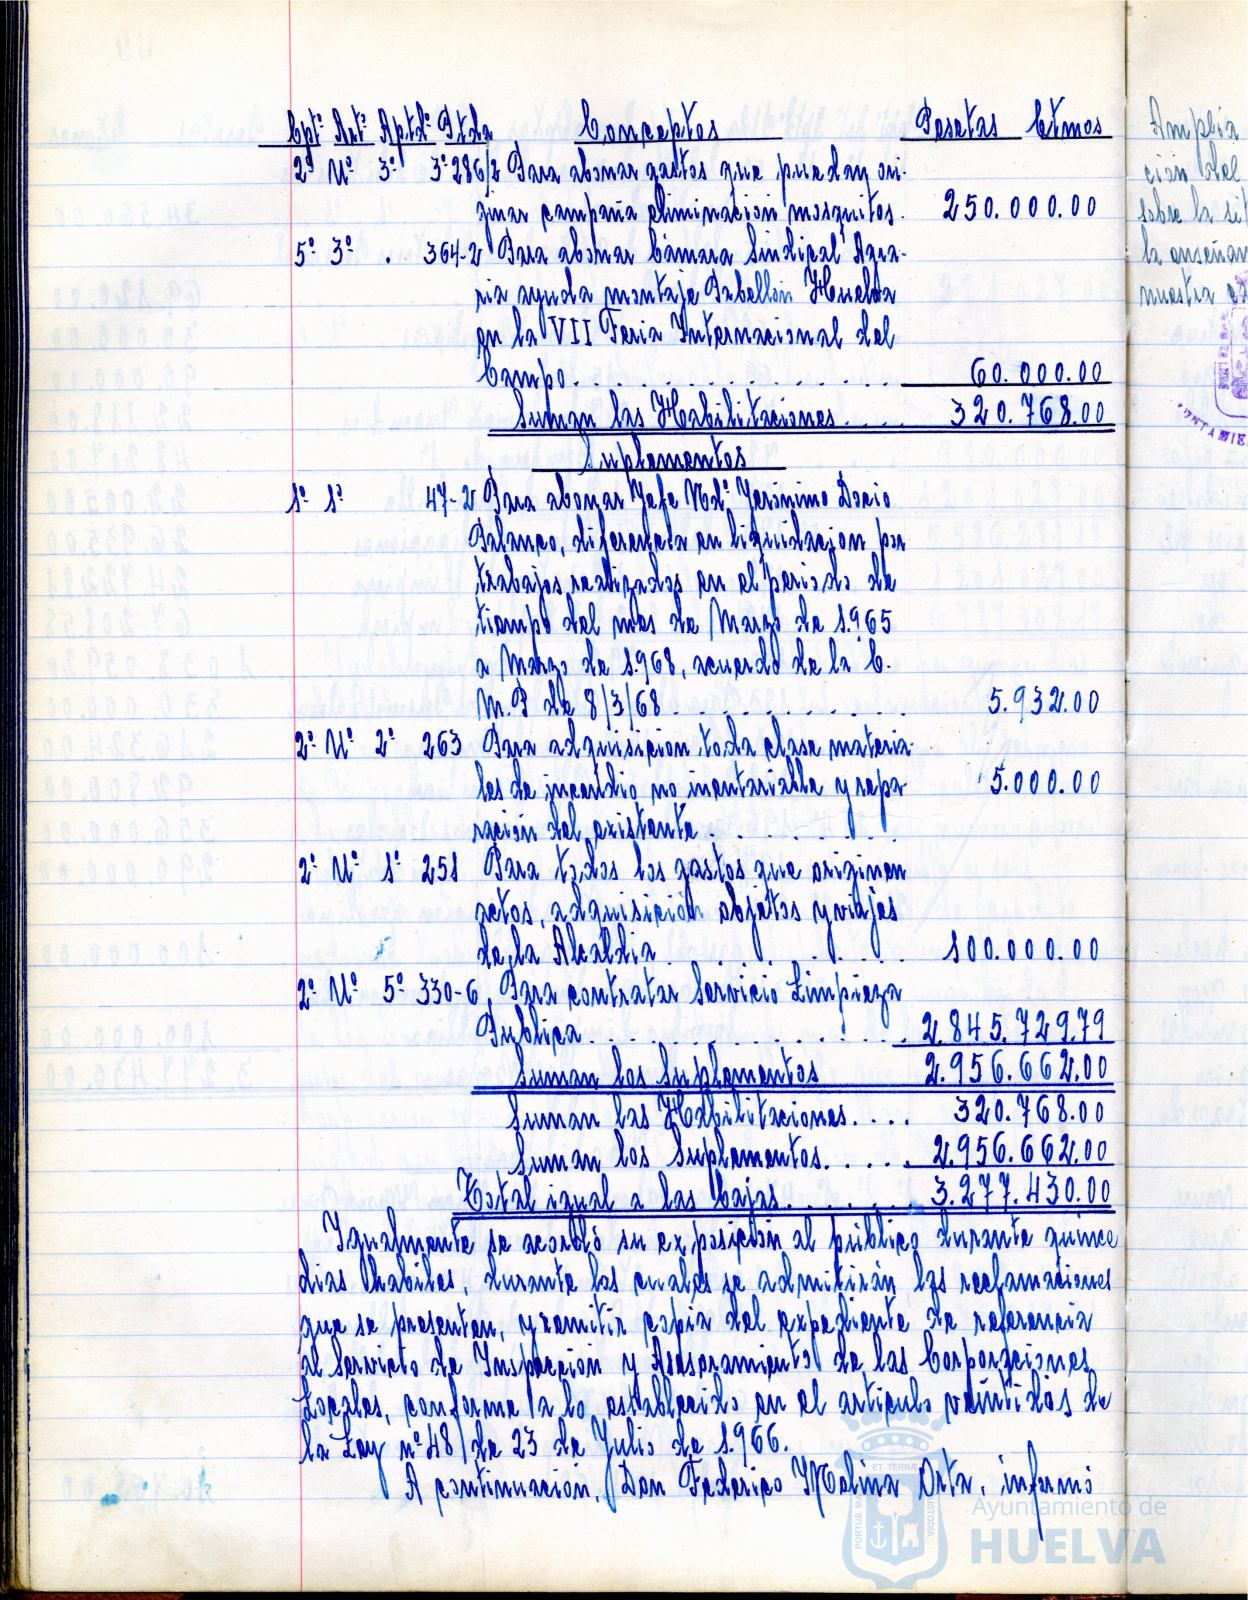 Cptº Artº Aptdº Ptda Conceptos Pesetas Ctmos
2º Uº 3º 3º 286/2 Para abonar gastos que puedan ori-
ginar campaña eliminacion mosquitos. 250.000.00
5º 3º . 364-2 Para abonar Cámara Sindical Agra-
ria ayuda montaje Pabellón Huelva
en la VII Feria Internacional del
Campo. . . . . . . . . . . . . . . 60.000.00
Suman las Habilitaciones. . . . 320.768.00
Suplementos
1º 1º 47-2 Para abonar Jefe Ndº Jerónimo Docio
Palanco, diferencia en liquidacion por
trabajos realizados en el periodo de
tiempo del mes de Marzo de 1.965
a Marzo de 1.968, acuerdo de la C.
M. P de 8/3/68. . . . . . . . . . 5.932.00
2º Uº 2º 263 Para adquisicion toda clase materia-
les de incendio no inentariable y repa- 5.000.00
ración del existente. . . . . .
2º Uº 1º 251 Para todos los gastos que originen
actos, adquisición objetos y viajes
de la Alcaldia. . . . . . . . . . 100.000.00
2º Uº 5º 330-6, Para contratar Servicio Limpieza
Publica. . . . . . . . . . . . . . . 2.845.729.79
Suman los Suplementos 2.956.662.00
Suman las Habilitaciones. . . . 320.768.00
Suman los Suplementos. . . . . 2.956.662.00
Total igual a las bajas. . . . . . . 3.277.430.00
Igualmente se acordó su exposición al público durante quince
dias habiles, durante los cuales se admitirán las reclamaciones
que se presenten, y remitir copia del expediente de referencia
al Servicio de Inspeccion y Asesoramiento de las Corporaciones
Locales, conforme a lo establecido en el articulo veintidós de
la Ley nº 48/ de 23 de Julio de 1.966.
A continuación, Don Federico Molina Orta, informó
Amplia
ción del
sobre la sit
la enseñan
nuestra
ET TERRÆ
PORTUS MA
CUSTODIA
Ayuntamiento de
HUELVA